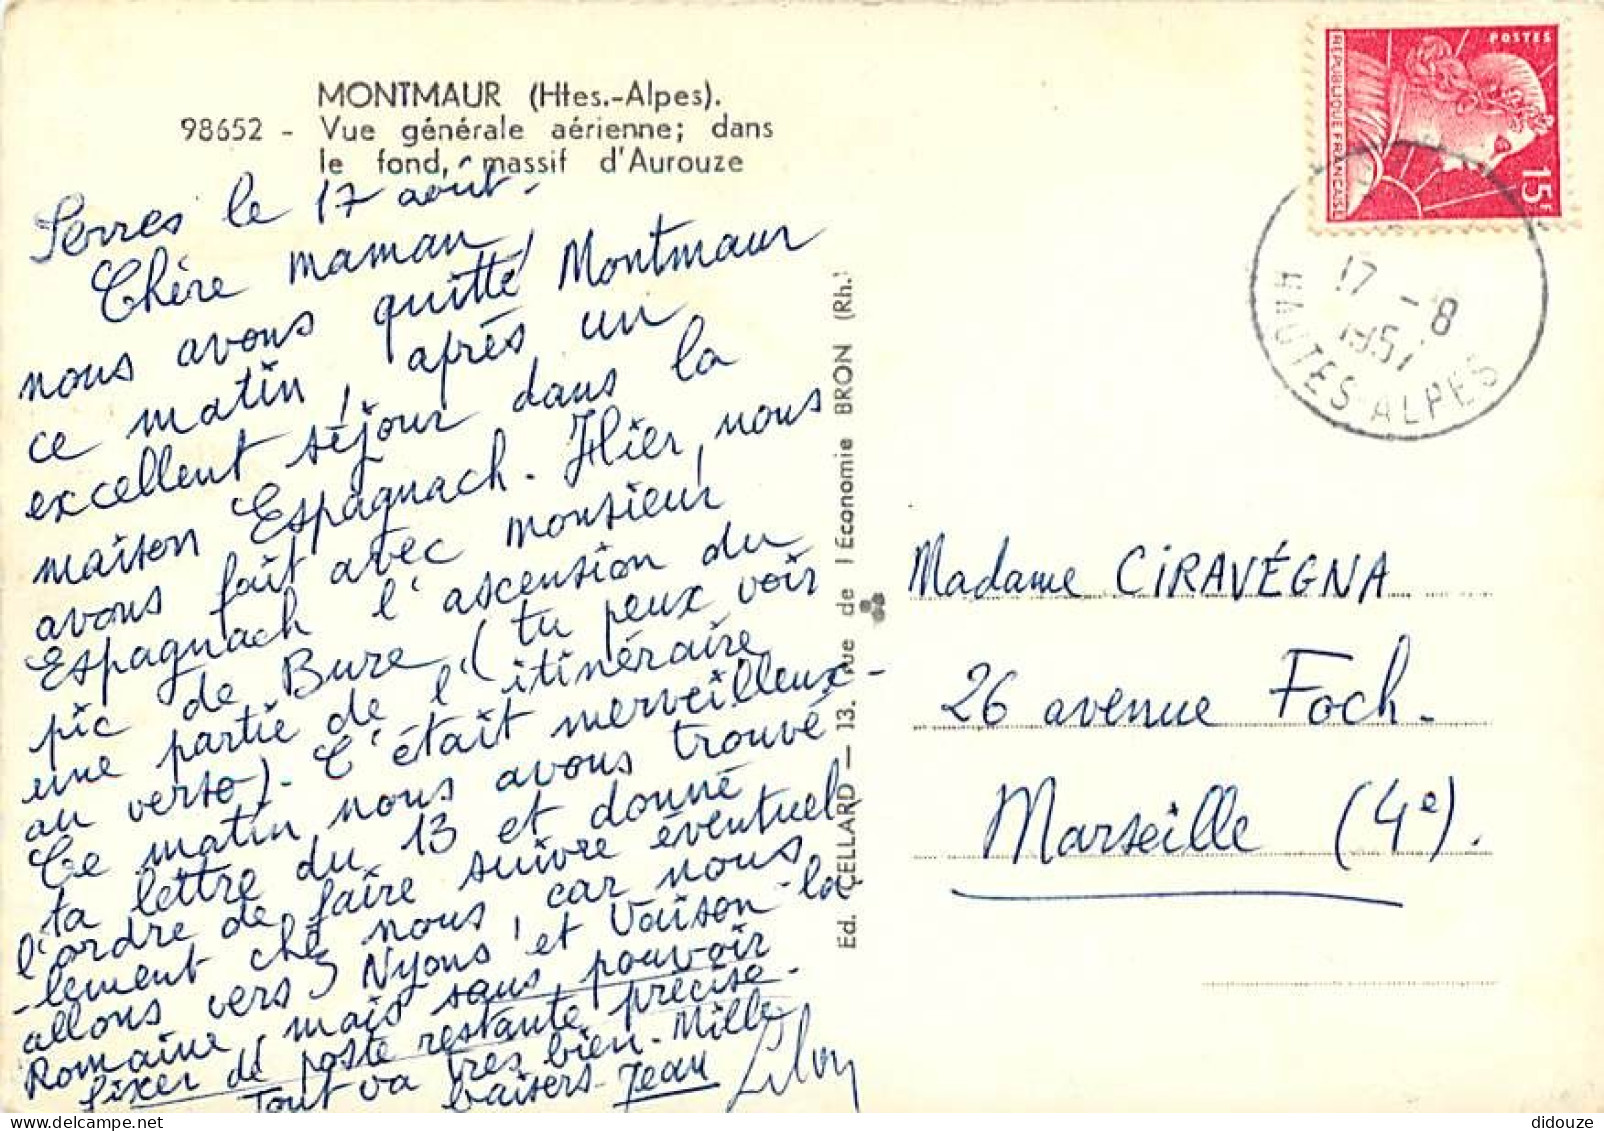 MONTMAUR (Htes.-Alpes).
98652 - Vue générale aérienne; dans
le fond, massif d'Aurouze
Serres le 17 août.
Chère maman,
nous avons quitté Montmaur
ce matin, après un
excellent séjour dans la
maison Espagnach. Hier, nous
avons fait avec monsieur
Espagnach l'ascension du
pic de Bure (tu peux voir
une partie de l'itinéraire
au verso). C'était merveilleux.
Ce matin nous avons trouvé
ta lettre du 13 et donné
l'ordre de faire suivre éventuel
-lement chez nous, car nous
allons vers Nyons et Vaison-la
Romaine, mais sans pouvoir
fixer de poste restante précise.
Tout va très bien. Mille
baisers. Jean
Ed. CELLARD — 13. rue de l Économie BRON (Rh.)
POSTES
RÉPUBLIQUE FRANÇAISE
15F
17 - 8
1957
HAUTES-ALPES
Madame CIRAVÉGNA
26 avenue Foch.
Marseille (4e).
didouze